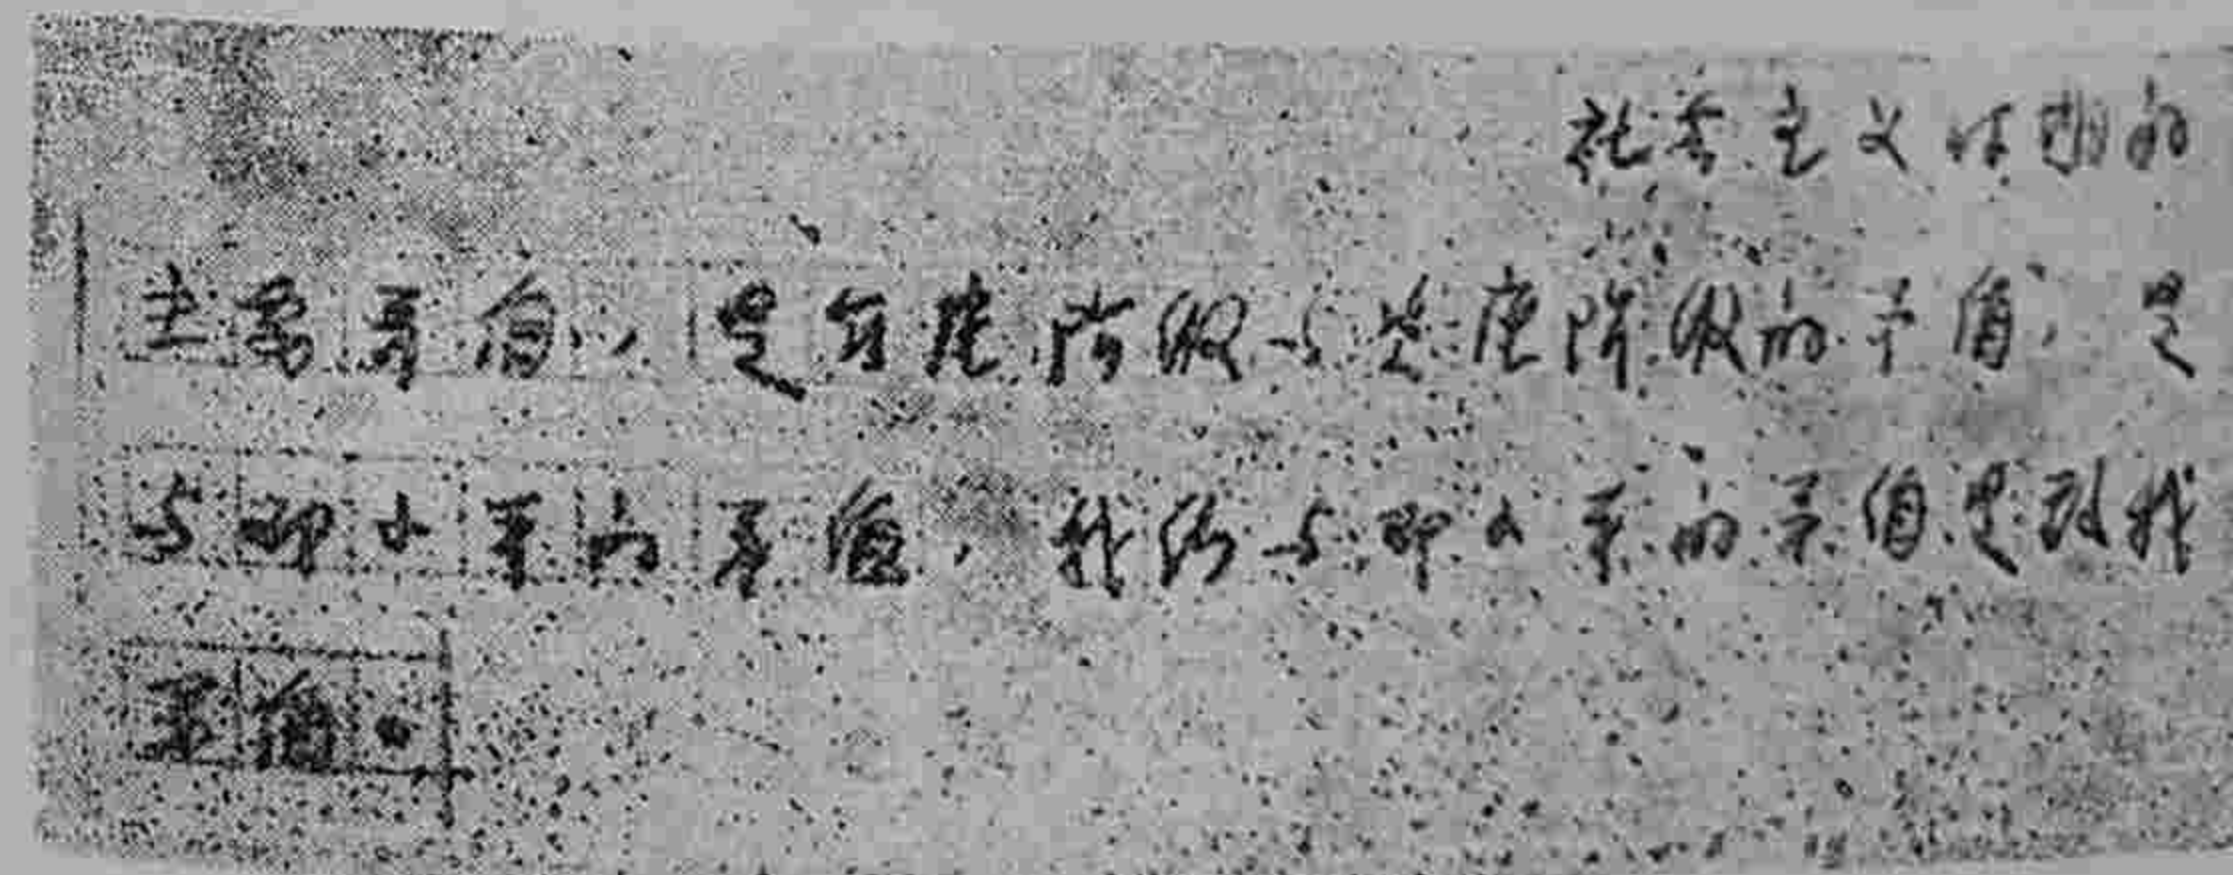 社会主义时期的
主要矛盾,是无产阶级与资产阶级的矛盾,是
与邓小平的矛盾,我们与邓小平的矛盾是敌我
矛盾。